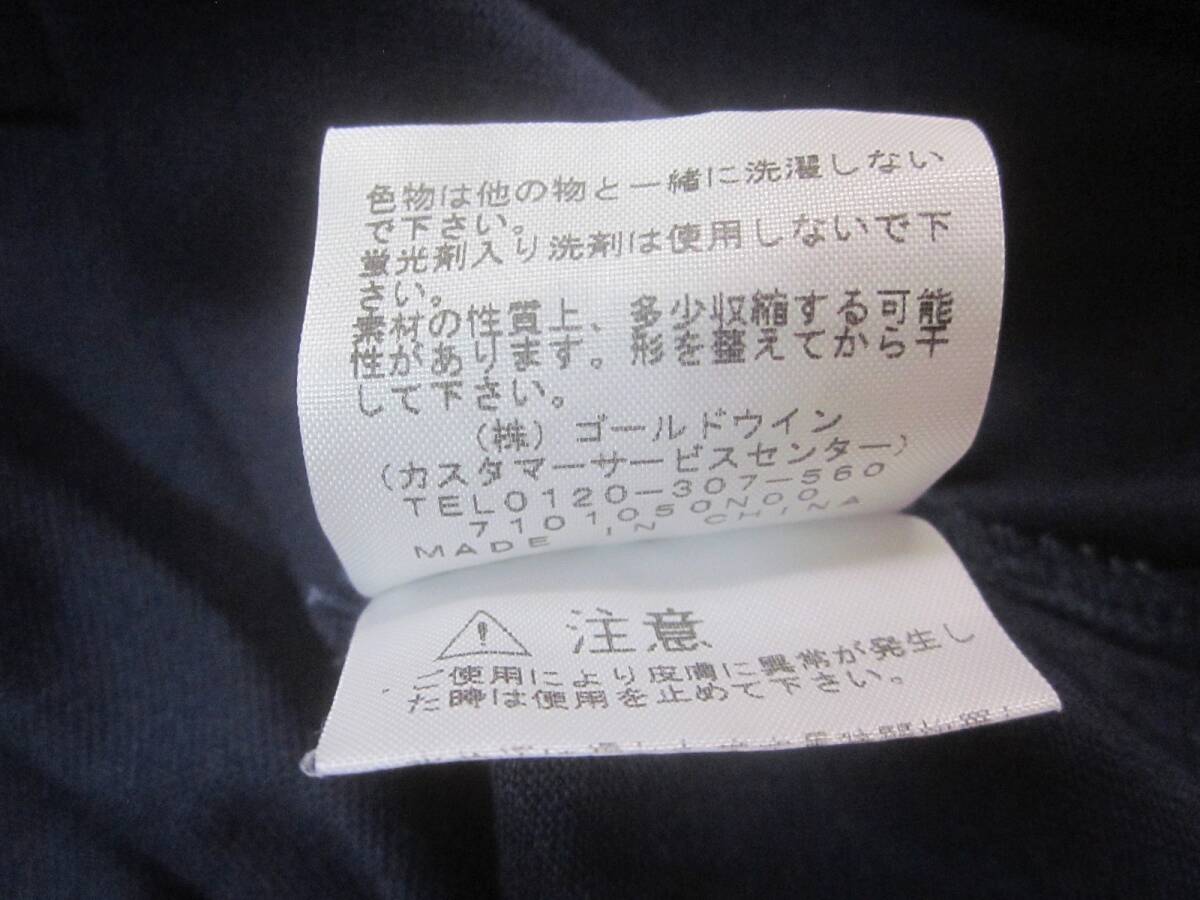 色物は他の物と一緒に洗濯しない
で下さい。
蛍光剤入り洗剤は使用しないで下
さい。
素材の性質上、多少収縮する可能
性があります。形を整えてから干
して下さい。
(株)ゴールドウイン
(カスタマーサービスセンター)
TEL0120-307-560
7101050N00
MADE IN CHINA
注意
ご使用により皮膚に異常が発生し
た時は使用を止めて下さい。